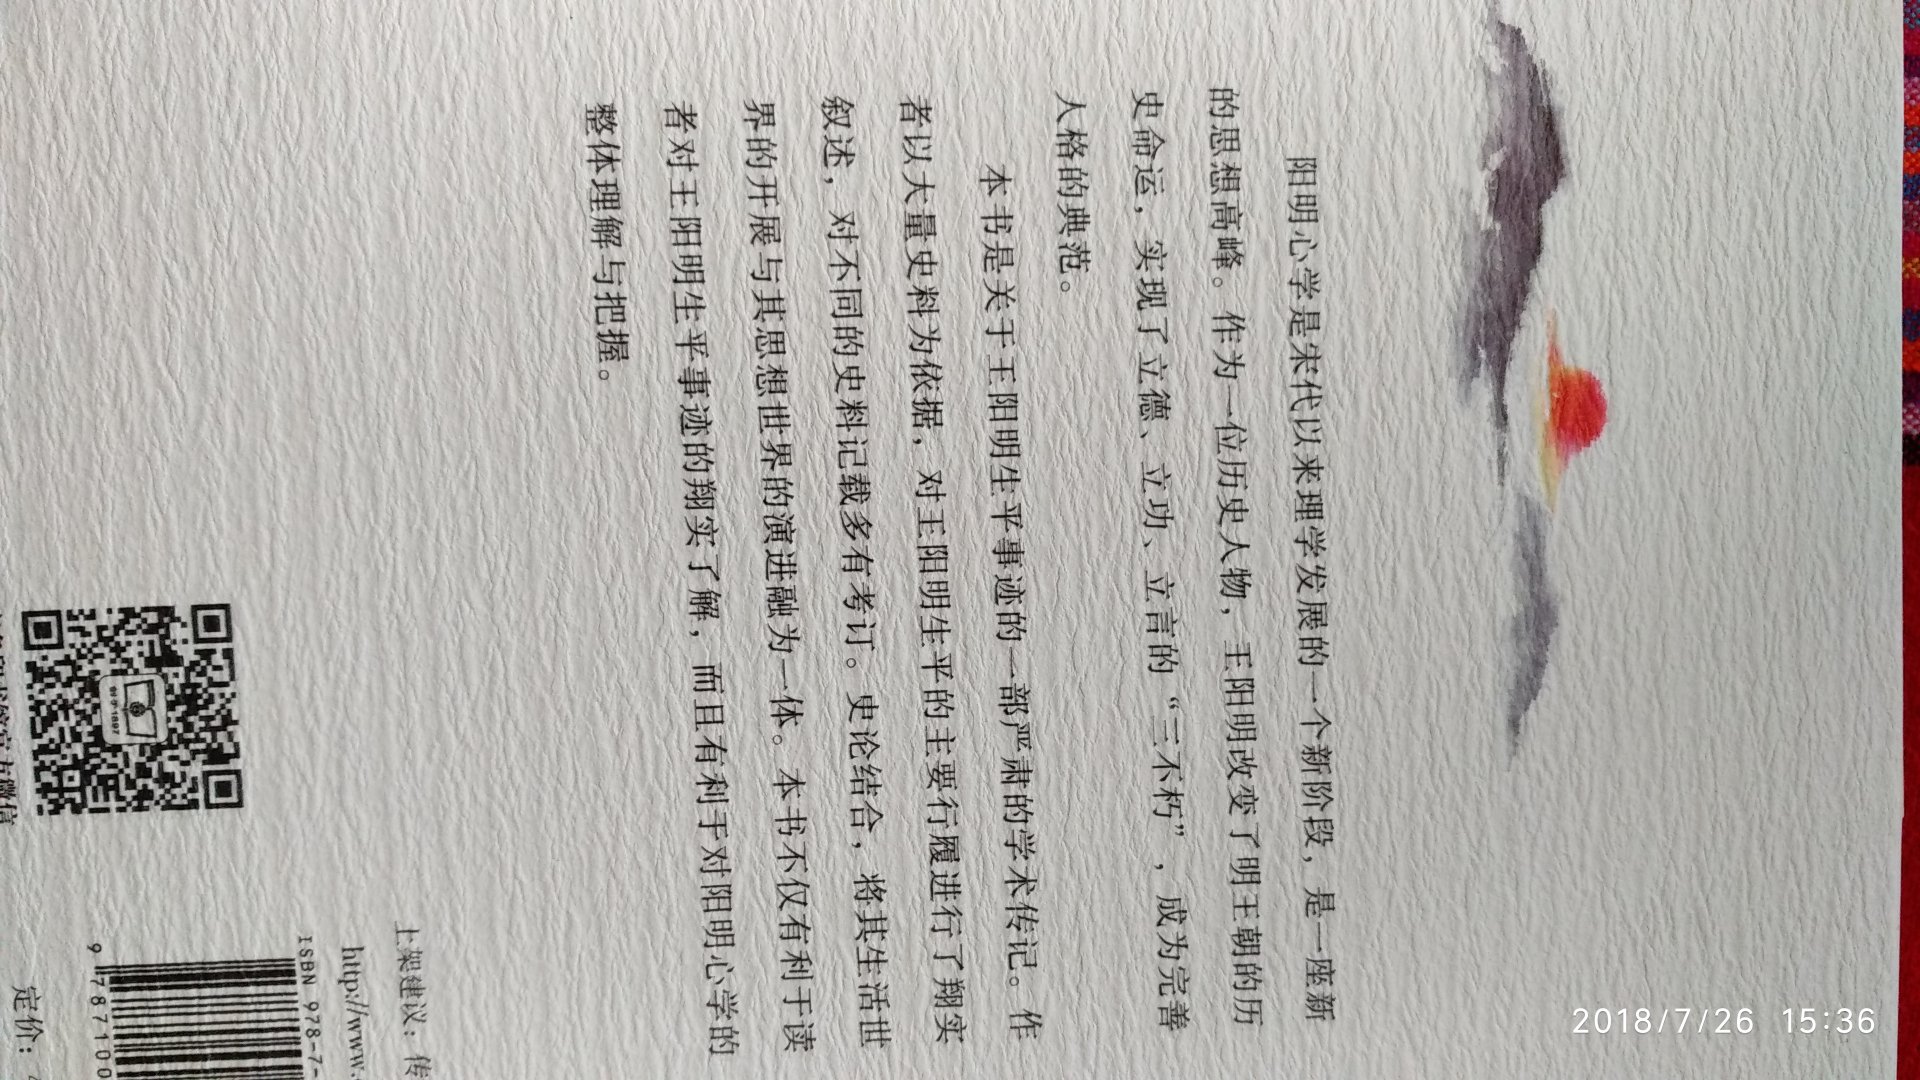 阳明心学是宋代以来理学发展的一个新阶段，是一座新
的思想高峰。作为一位历史人物，王阳明改变了明王朝的历
史命运，实现了立德、立功、立言的“三不朽”，成为完善
人格的典范。
本书是关于王阳明生平事迹的一部严肃的学术传记。作
者以大量史料为依据，对王阳明生平的主要行履进行了翔实
叙述，对不同的史料记载多有考订。史论结合，将其生活世
界的开展与其思想世界的演进融为一体。本书不仅有利于读
者对王阳明生平事迹的翔实了解，而且有利于对阳明心学的
整体理解与把握。
上架建议：传
http://www.
ISBN 978-7-
9 787100
定价：
2018/7/26 15:36